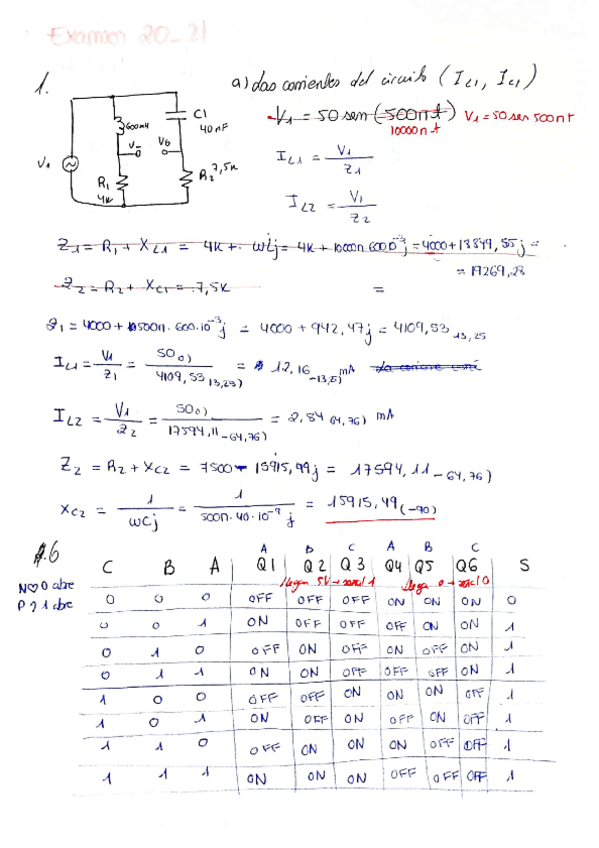 Examen 20_21
1.
a) das corrientes del circuito (IL1, Ic1)
V1 = 50 sen (500πt) V1 = 50 sen 500πt
10000πt
C1
40nF
600mH
Va
Vb
V1
R1
4K
R2
7,5K
IL1 = V1 / Z1
IL2 = V1 / Z2
Z1 = R1 + XL1 = 4K + ωLj = 4K + 10000π 600·10^-3 j = 4000 + 18849,55j =
= 19269,28
Z2 = R2 + XC1 = 7,5K =
Z1 = 4000 + 500π · 600·10^-3 j = 4000 + 942,47j = 4109,53 13,25
IL1 = V1 / Z1 = 50 0) / 4109,53 13,25) = 12,16 -13,25) mA
IL2 = V1 / Z2 = 50 0) / 17594,11 -64,76) = 2,84 64,76) mA
Z2 = R2 + XC2 = 7500 - 15915,49j = 17594,11 -64,76)
XC2 = 1 / ωCj = 1 / 500π · 40·10^-9 j = 15915,49 (-90)
1.6
A B C A B C
C B A Q1 Q2 Q3 Q4 Q5 Q6 S
llega 5V → sale 1 llega 0 → sale 0
N 0 abre
P 1 abre
0 0 0 OFF OFF OFF ON ON ON 0
0 0 1 ON OFF OFF OFF ON ON 1
0 1 0 OFF ON OFF ON OFF ON 1
0 1 1 ON ON OFF OFF OFF ON 1
1 0 0 OFF OFF ON ON ON OFF 1
1 0 1 ON OFF ON OFF ON OFF 1
1 1 0 OFF ON ON ON OFF OFF 1
1 1 1 ON ON ON OFF OFF OFF 1